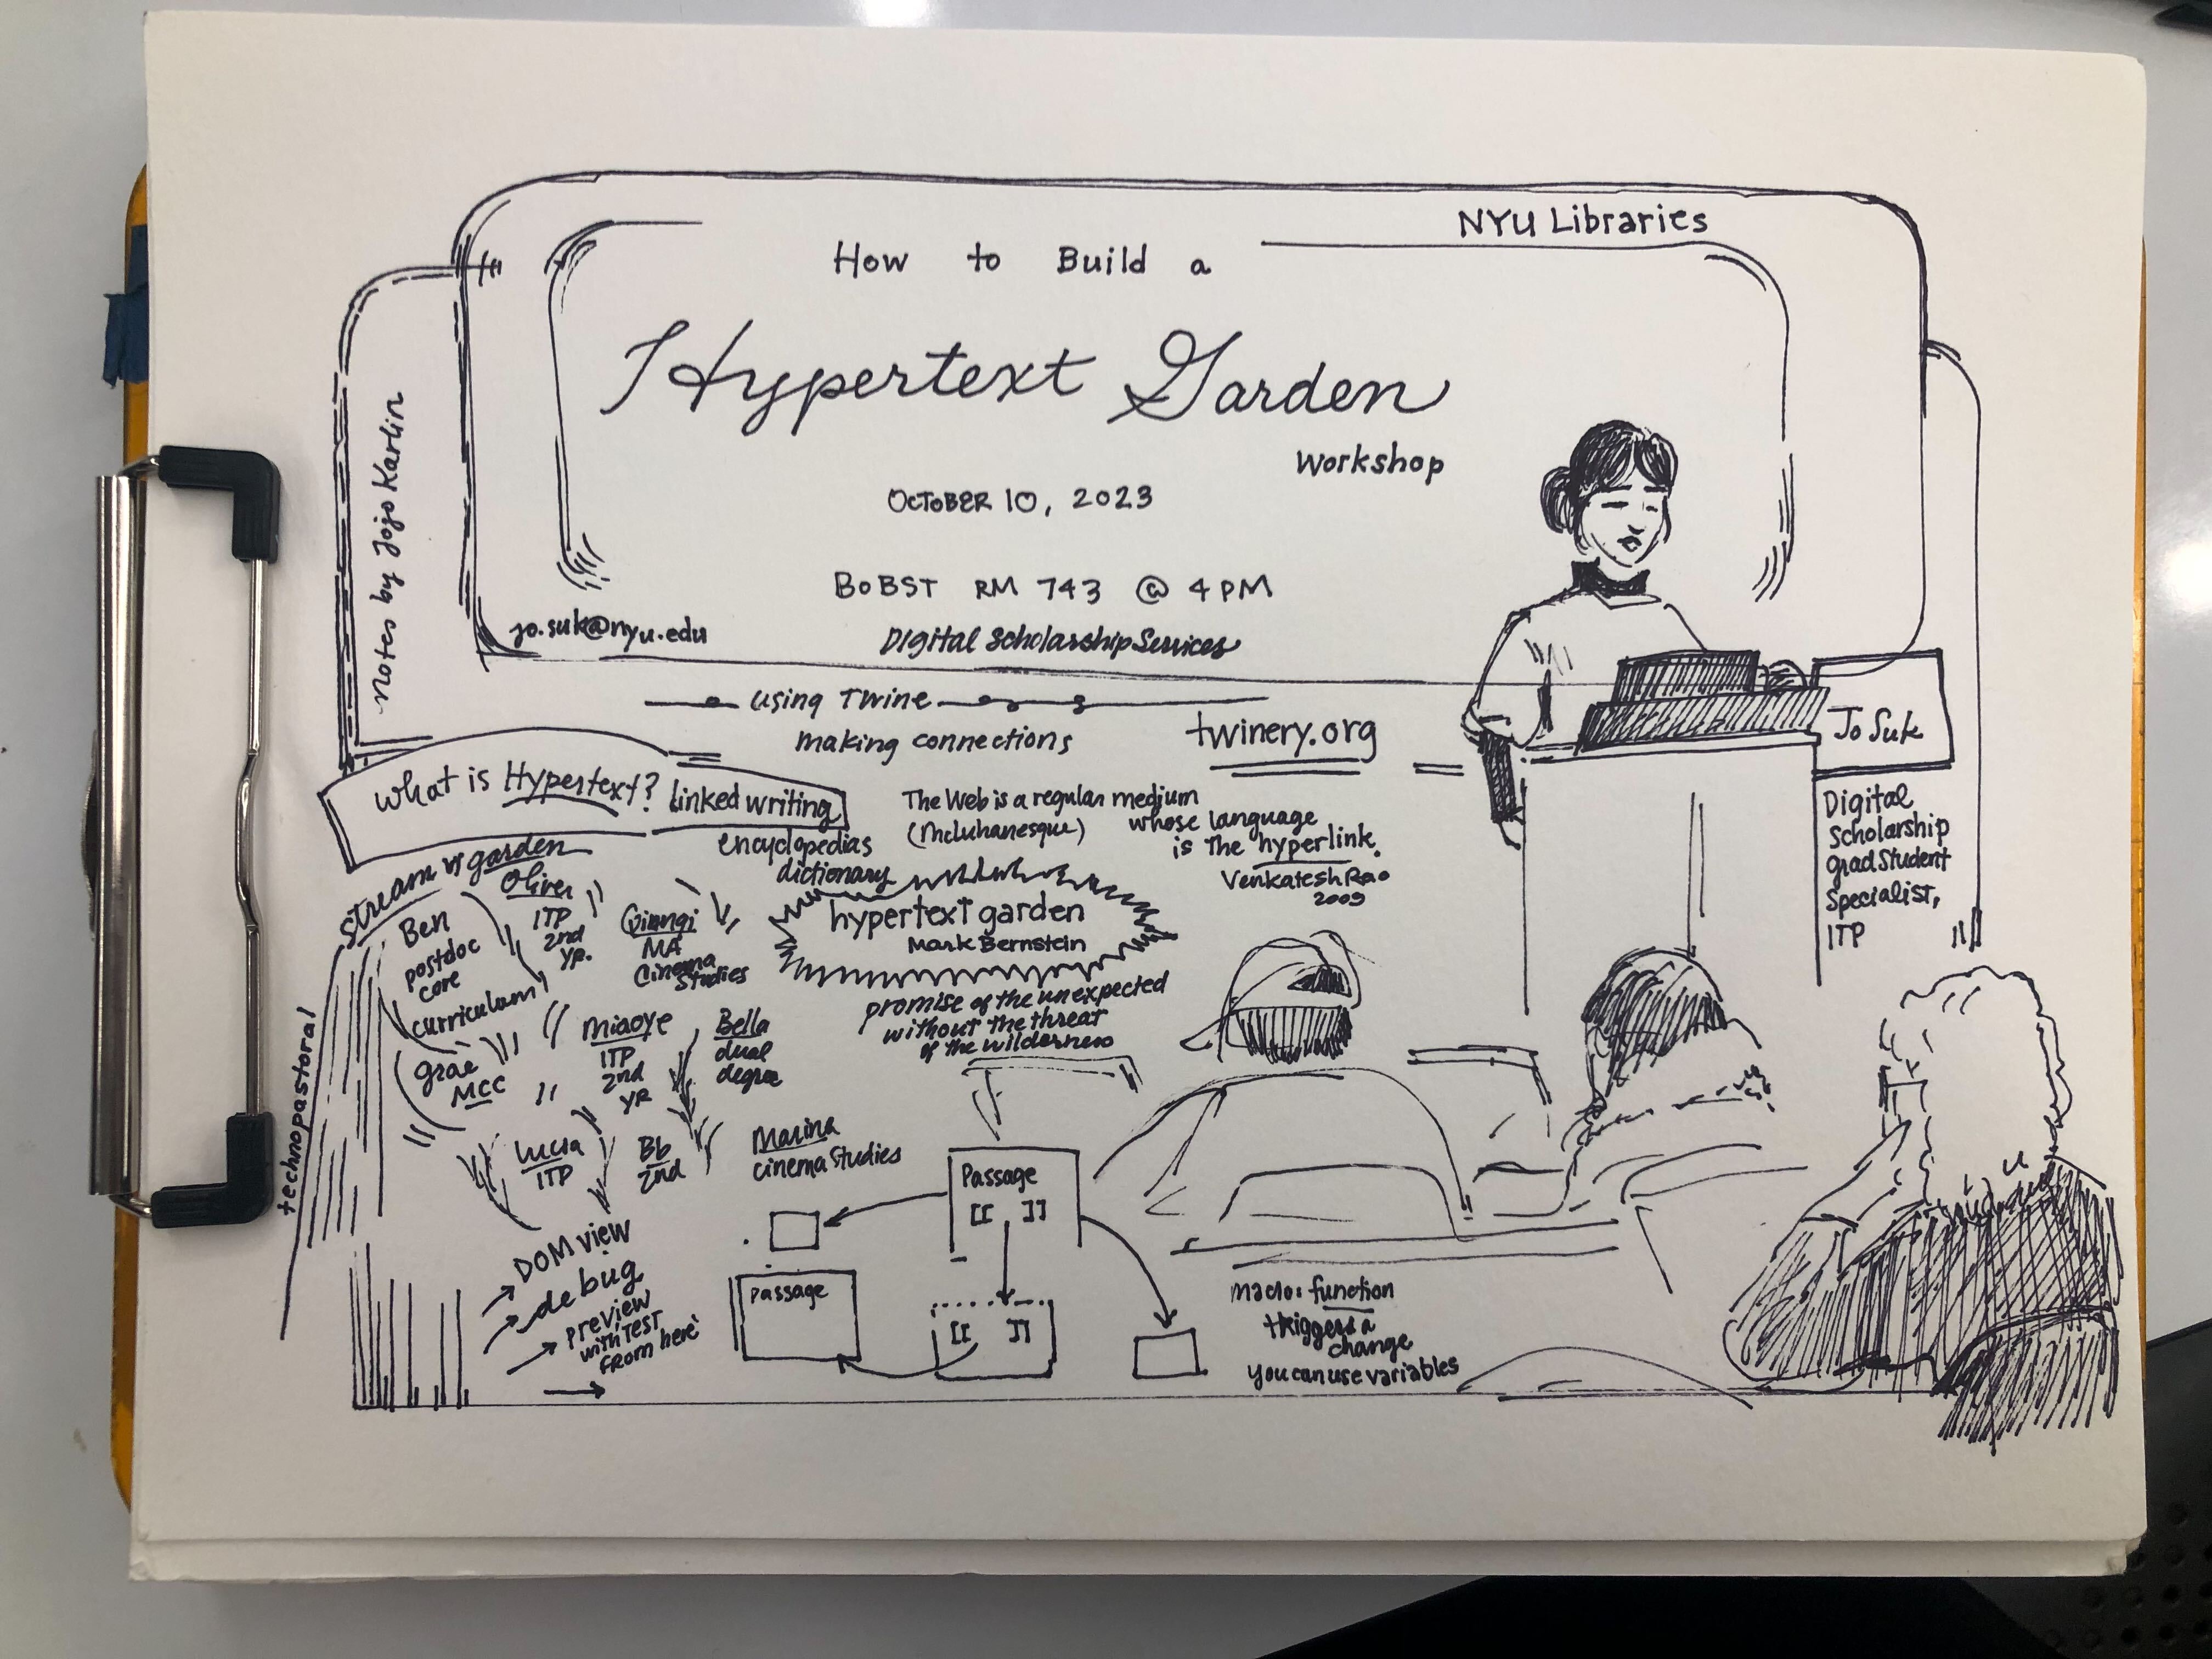 NYU Libraries
How to Build a
Hypertext Garden
Workshop
OCTOBER 10, 2023
BOBST RM 743 @ 4PM
jo.suk@nyu.edu
Digital Scholarship Services
Notes by Jojo Karlin
using Twine
making connections
twinery.org
Jo Suk
Digital
Scholarship
Grad Student
Specialist,
ITP
What is Hypertext? linked writing
encyclopedias
dictionary
The Web is a regular medium
(McLuhanesque)
whose language
is the hyperlink.
Venkatesh Rao
2009
Stream vs garden
technopastoral
Ben
postdoc
core
curriculum
Oliver
ITP
2nd
yr.
Qianqi
MA
Cinema
Studies
hypertext garden
Mark Bernstein
promise of the unexpected
without the threat
of the wilderness
grae
MCC
Miaoye
ITP
2nd
yr
Bella
dual
degree
Lucia
ITP
Bb
2nd
Marina
cinema Studies
DOM view
debug
preview
with TEST
from here
Passage
[[ ]]
Passage
[[ ]]
macro: function
triggers a
change
you can use variables